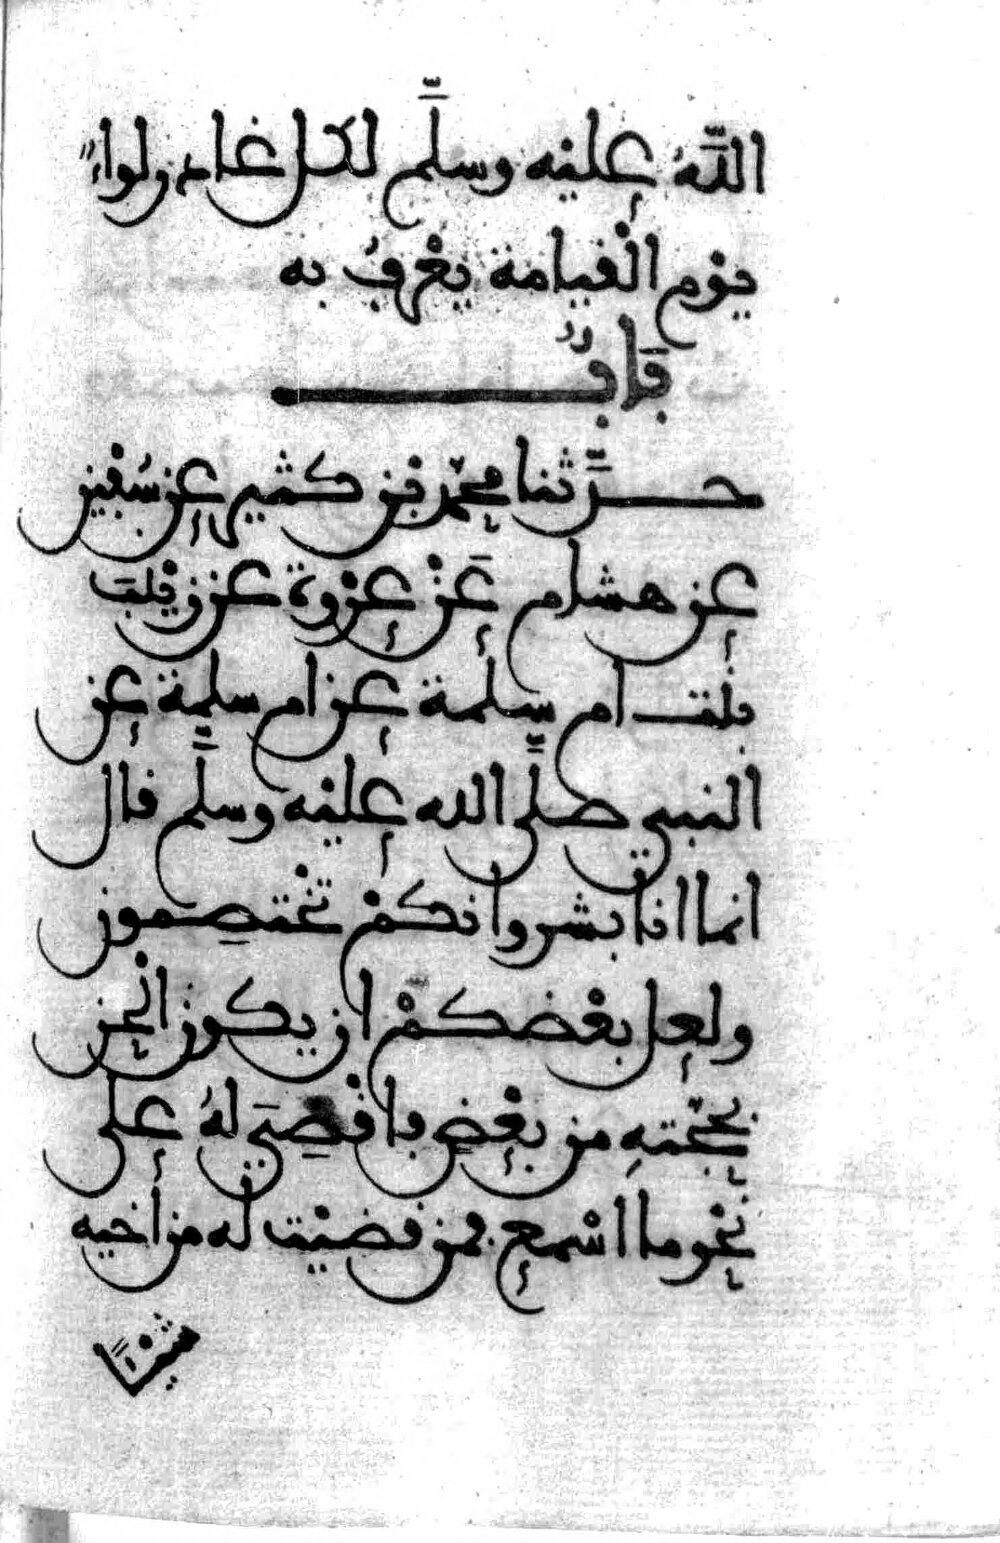 اللَّهُ عليْه وسلَّم لكل غادر لواءً
يوْم الْقيامة يعْرفُ به
بَابٌ
حدَّثنا محمّد بن كثير عن سُفْين
عن هشام عَنْ عرْوة عن زيْنبَ
بنت ام سلمة عن ام سلمة عن
النبي صلَّى الله عليْه وسلَّم قال
انما انا بشر وانكمْ تخْتصِمون
ولعل بعْضكمْ ان يكون الْحن
بحجّتهِ من بعْضِ فاقْضِيَ لهُ على
نحْو ما اسْمع فمن قضيْت له من اخيه
شيْئاً